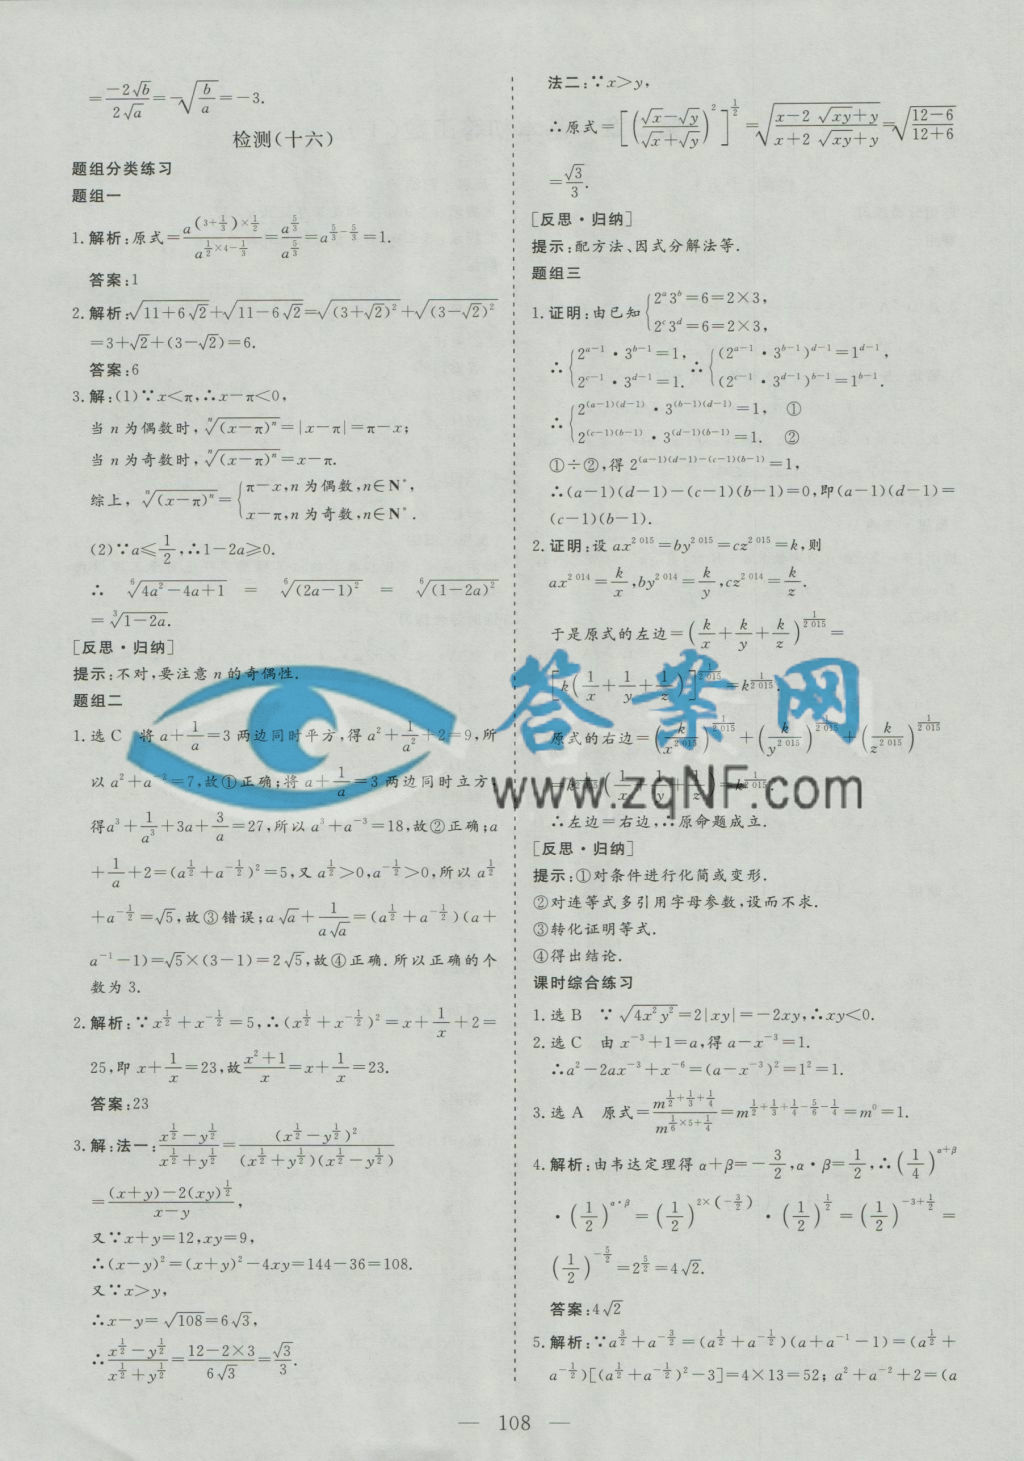 =\frac{-2\sqrt{b}}{2\sqrt{a}}=-\sqrt{\frac{b}{a}}=-3.
检测(十六)
题组分类练习
题组一
1.解析:原式=\frac{a^{(3+\frac{1}{3})×\frac{1}{2}}}{a^{\frac{1}{2}×4-\frac{1}{3}}}=\frac{a^{\frac{5}{3}}}{a^{\frac{5}{3}}}=a^{\frac{5}{3}-\frac{5}{3}}=1.
答案:1
2.解析:\sqrt{11+6\sqrt{2}}+\sqrt{11-6\sqrt{2}}=\sqrt{(3+\sqrt{2})^2}+\sqrt{(3-\sqrt{2})^2}
=3+\sqrt{2}+(3-\sqrt{2})=6.
答案:6
3.解:(1)∵x<π,∴x-π<0,
当n为偶数时,\sqrt[n]{(x-π)^n}=|x-π|=π-x;
当n为奇数时,\sqrt[n]{(x-π)^n}=x-π.
综上,\sqrt[n]{(x-π)^n}={π-x,n为偶数,n∈N*,
x-π,n为奇数,n∈N*.
(2)∵a≤\frac{1}{2},∴1-2a≥0.
∴ \sqrt[6]{4a^2-4a+1} = \sqrt[6]{(2a-1)^2} = \sqrt[6]{(1-2a)^2}
=\sqrt[3]{1-2a}.
[反思·归纳]
提示:不对,要注意n的奇偶性.
题组二
1.选C 将a+\frac{1}{a}=3两边同时平方,得a^2+\frac{1}{a^2}+2=9,所
以a^2+a^{-2}=7,故①正确;将a+\frac{1}{a}=3两边同时立方,
得a^3+\frac{1}{a^3}+3a+\frac{3}{a}=27,所以a^3+a^{-3}=18,故②正确;a
+\frac{1}{a}+2=(a^{\frac{1}{2}}+a^{-\frac{1}{2}})^2=5,又a^{\frac{1}{2}}>0,a^{-\frac{1}{2}}>0,所以a^{\frac{1}{2}}
+a^{-\frac{1}{2}}=\sqrt{5},故③错误;a\sqrt{a}+\frac{1}{a\sqrt{a}}=(a^{\frac{1}{2}}+a^{-\frac{1}{2}})(a+
a^{-1}-1)=\sqrt{5}×(3-1)=2\sqrt{5},故④正确.所以正确的个
数为3.
2.解析:∵x^{\frac{1}{2}}+x^{-\frac{1}{2}}=5,∴(x^{\frac{1}{2}}+x^{-\frac{1}{2}})^2=x+\frac{1}{x}+2=
25,即x+\frac{1}{x}=23,故\frac{x^2+1}{x}=x+\frac{1}{x}=23.
答案:23
3.解:法一:\frac{x^{\frac{1}{2}}-y^{\frac{1}{2}}}{x^{\frac{1}{2}}+y^{\frac{1}{2}}}=\frac{(x^{\frac{1}{2}}-y^{\frac{1}{2}})^2}{(x^{\frac{1}{2}}+y^{\frac{1}{2}})(x^{\frac{1}{2}}-y^{\frac{1}{2}})}
=\frac{(x+y)-2(xy)^{\frac{1}{2}}}{x-y},
又∵x+y=12,xy=9,
∴(x-y)^2=(x+y)^2-4xy=144-36=108.
又∵x>y,
∴x-y=\sqrt{108}=6\sqrt{3},
∴\frac{x^{\frac{1}{2}}-y^{\frac{1}{2}}}{x^{\frac{1}{2}}+y^{\frac{1}{2}}}=\frac{12-2×3}{6\sqrt{3}}=\frac{\sqrt{3}}{3}.
法二:∵x>y,
∴原式=[(\frac{\sqrt{x}-\sqrt{y}}{\sqrt{x}+\sqrt{y}})^2]^{\frac{1}{2}}=\sqrt{\frac{x-2\sqrt{xy}+y}{x+2\sqrt{xy}+y}}=\sqrt{\frac{12-6}{12+6}}
=\frac{\sqrt{3}}{3}.
[反思·归纳]
提示:配方法、因式分解法等.
题组三
1.证明:由已知{2^a3^b=6=2×3,
2^c3^d=6=2×3,
∴{2^{a-1}·3^{b-1}=1, ∴{(2^{a-1}·3^{b-1})^{d-1}=1^{d-1},
2^{c-1}·3^{d-1}=1. (2^{c-1}·3^{d-1})^{b-1}=1^{b-1}.
∴{2^{(a-1)(d-1)}·3^{(b-1)(d-1)}=1, ①
2^{(c-1)(b-1)}·3^{(d-1)(b-1)}=1. ②
①÷②,得2^{(a-1)(d-1)-(c-1)(b-1)}=1,
∴(a-1)(d-1)-(c-1)(b-1)=0,即(a-1)(d-1)=
(c-1)(b-1).
2.证明:设ax^{2 015}=by^{2 015}=cz^{2 015}=k,则
ax^{2 014}=\frac{k}{x},by^{2 014}=\frac{k}{y},cz^{2 014}=\frac{k}{z}.
于是原式的左边=(\frac{k}{x}+\frac{k}{y}+\frac{k}{z})^{\frac{1}{2 015}}=
[k(\frac{1}{x}+\frac{1}{y}+\frac{1}{z})]^{\frac{1}{2 015}}=k^{\frac{1}{2 015}}.
原式的右边=(\frac{k}{x^{2 015}})^{\frac{1}{2 015}}+(\frac{k}{y^{2 015}})^{\frac{1}{2 015}}+(\frac{k}{z^{2 015}})^{\frac{1}{2 015}}
=k^{\frac{1}{2 015}}(\frac{1}{x}+\frac{1}{y}+\frac{1}{z})=k^{\frac{1}{2 015}}.
∴左边=右边,∴原命题成立.
[反思·归纳]
提示:①对条件进行化简或变形.
②对连等式多引用字母参数,设而不求.
③转化证明等式.
④得出结论.
课时综合练习
1.选B ∵\sqrt{4x^2y^2}=2|xy|=-2xy,∴xy<0.
2.选C 由x^{-3}+1=a,得a-x^{-3}=1.
∴a^2-2ax^{-3}+x^{-6}=(a-x^{-3})^2=1^2=1.
3.选A 原式=\frac{m^{\frac{1}{2}+\frac{1}{3}+\frac{1}{4}}}{m^{\frac{1}{6}×5+\frac{1}{4}}}=m^{\frac{1}{2}+\frac{1}{3}+\frac{1}{4}-\frac{5}{6}-\frac{1}{4}}=m^0=1.
4.解析:由韦达定理得α+β=-\frac{3}{2},α·β=\frac{1}{2},∴(\frac{1}{4})^{α+β}
·(\frac{1}{2})^{α·β}=(\frac{1}{2})^{2×(-\frac{3}{2})}·(\frac{1}{2})^{\frac{1}{2}}=(\frac{1}{2})^{-3+\frac{1}{2}}=
(\frac{1}{2})^{-\frac{5}{2}}=2^{\frac{5}{2}}=4\sqrt{2}.
答案:4\sqrt{2}
5.解析:∵a^{\frac{3}{2}}+a^{-\frac{3}{2}}=(a^{\frac{1}{2}}+a^{-\frac{1}{2}})(a+a^{-1}-1)=(a^{\frac{1}{2}}+
a^{-\frac{1}{2}})[(a^{\frac{1}{2}}+a^{-\frac{1}{2}})^2-3]=4×13=52; a^2+a^{-2}+2=(a
答案网
www.zqNF.com
— 108 —